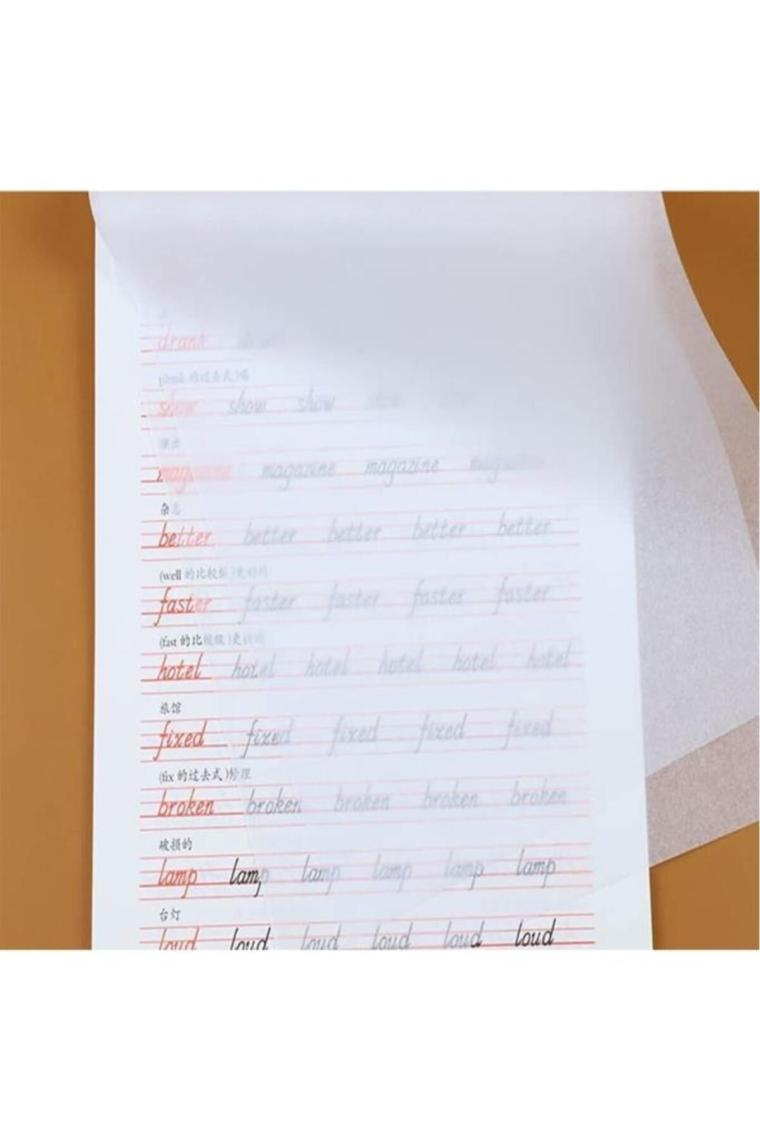 drank
(drink 的过去式)喝
show show show show
演出
magazine magazine magazine magazine
杂志
better better better better better
(well 的比较级)更好的
faster faster faster faster faster
(fast 的比较级)更快的
hotel hotel hotel hotel hotel hotel
旅馆
fixed fixed fixed fixed fixed
(fix 的过去式)修理
broken broken broken broken broken
破损的
lamp lamp lamp lamp lamp lamp
台灯
loud loud loud loud loud loud